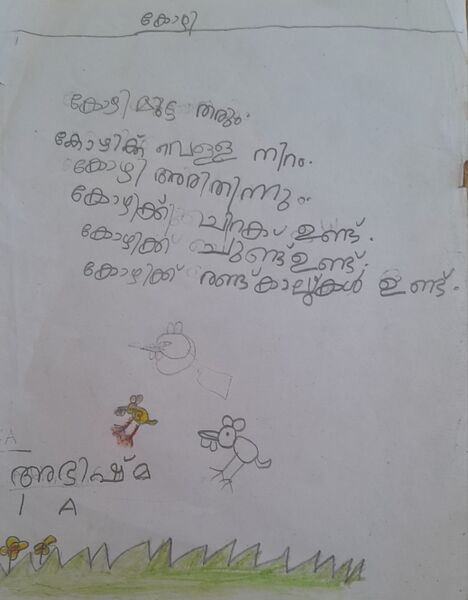 കോഴി
കോഴി മുട്ട തരും.
കോഴിക്ക് വെള്ള നിറം.
കോഴി അരിതിന്നും.
കോഴിക്ക് ചിറക് ഉണ്ട്.
കോഴിക്ക് ചുണ്ട് ഉണ്ട്.
കോഴിക്ക് രണ്ട് കാലുകൾ ഉണ്ട്.
അഭിഷ്മ
I A